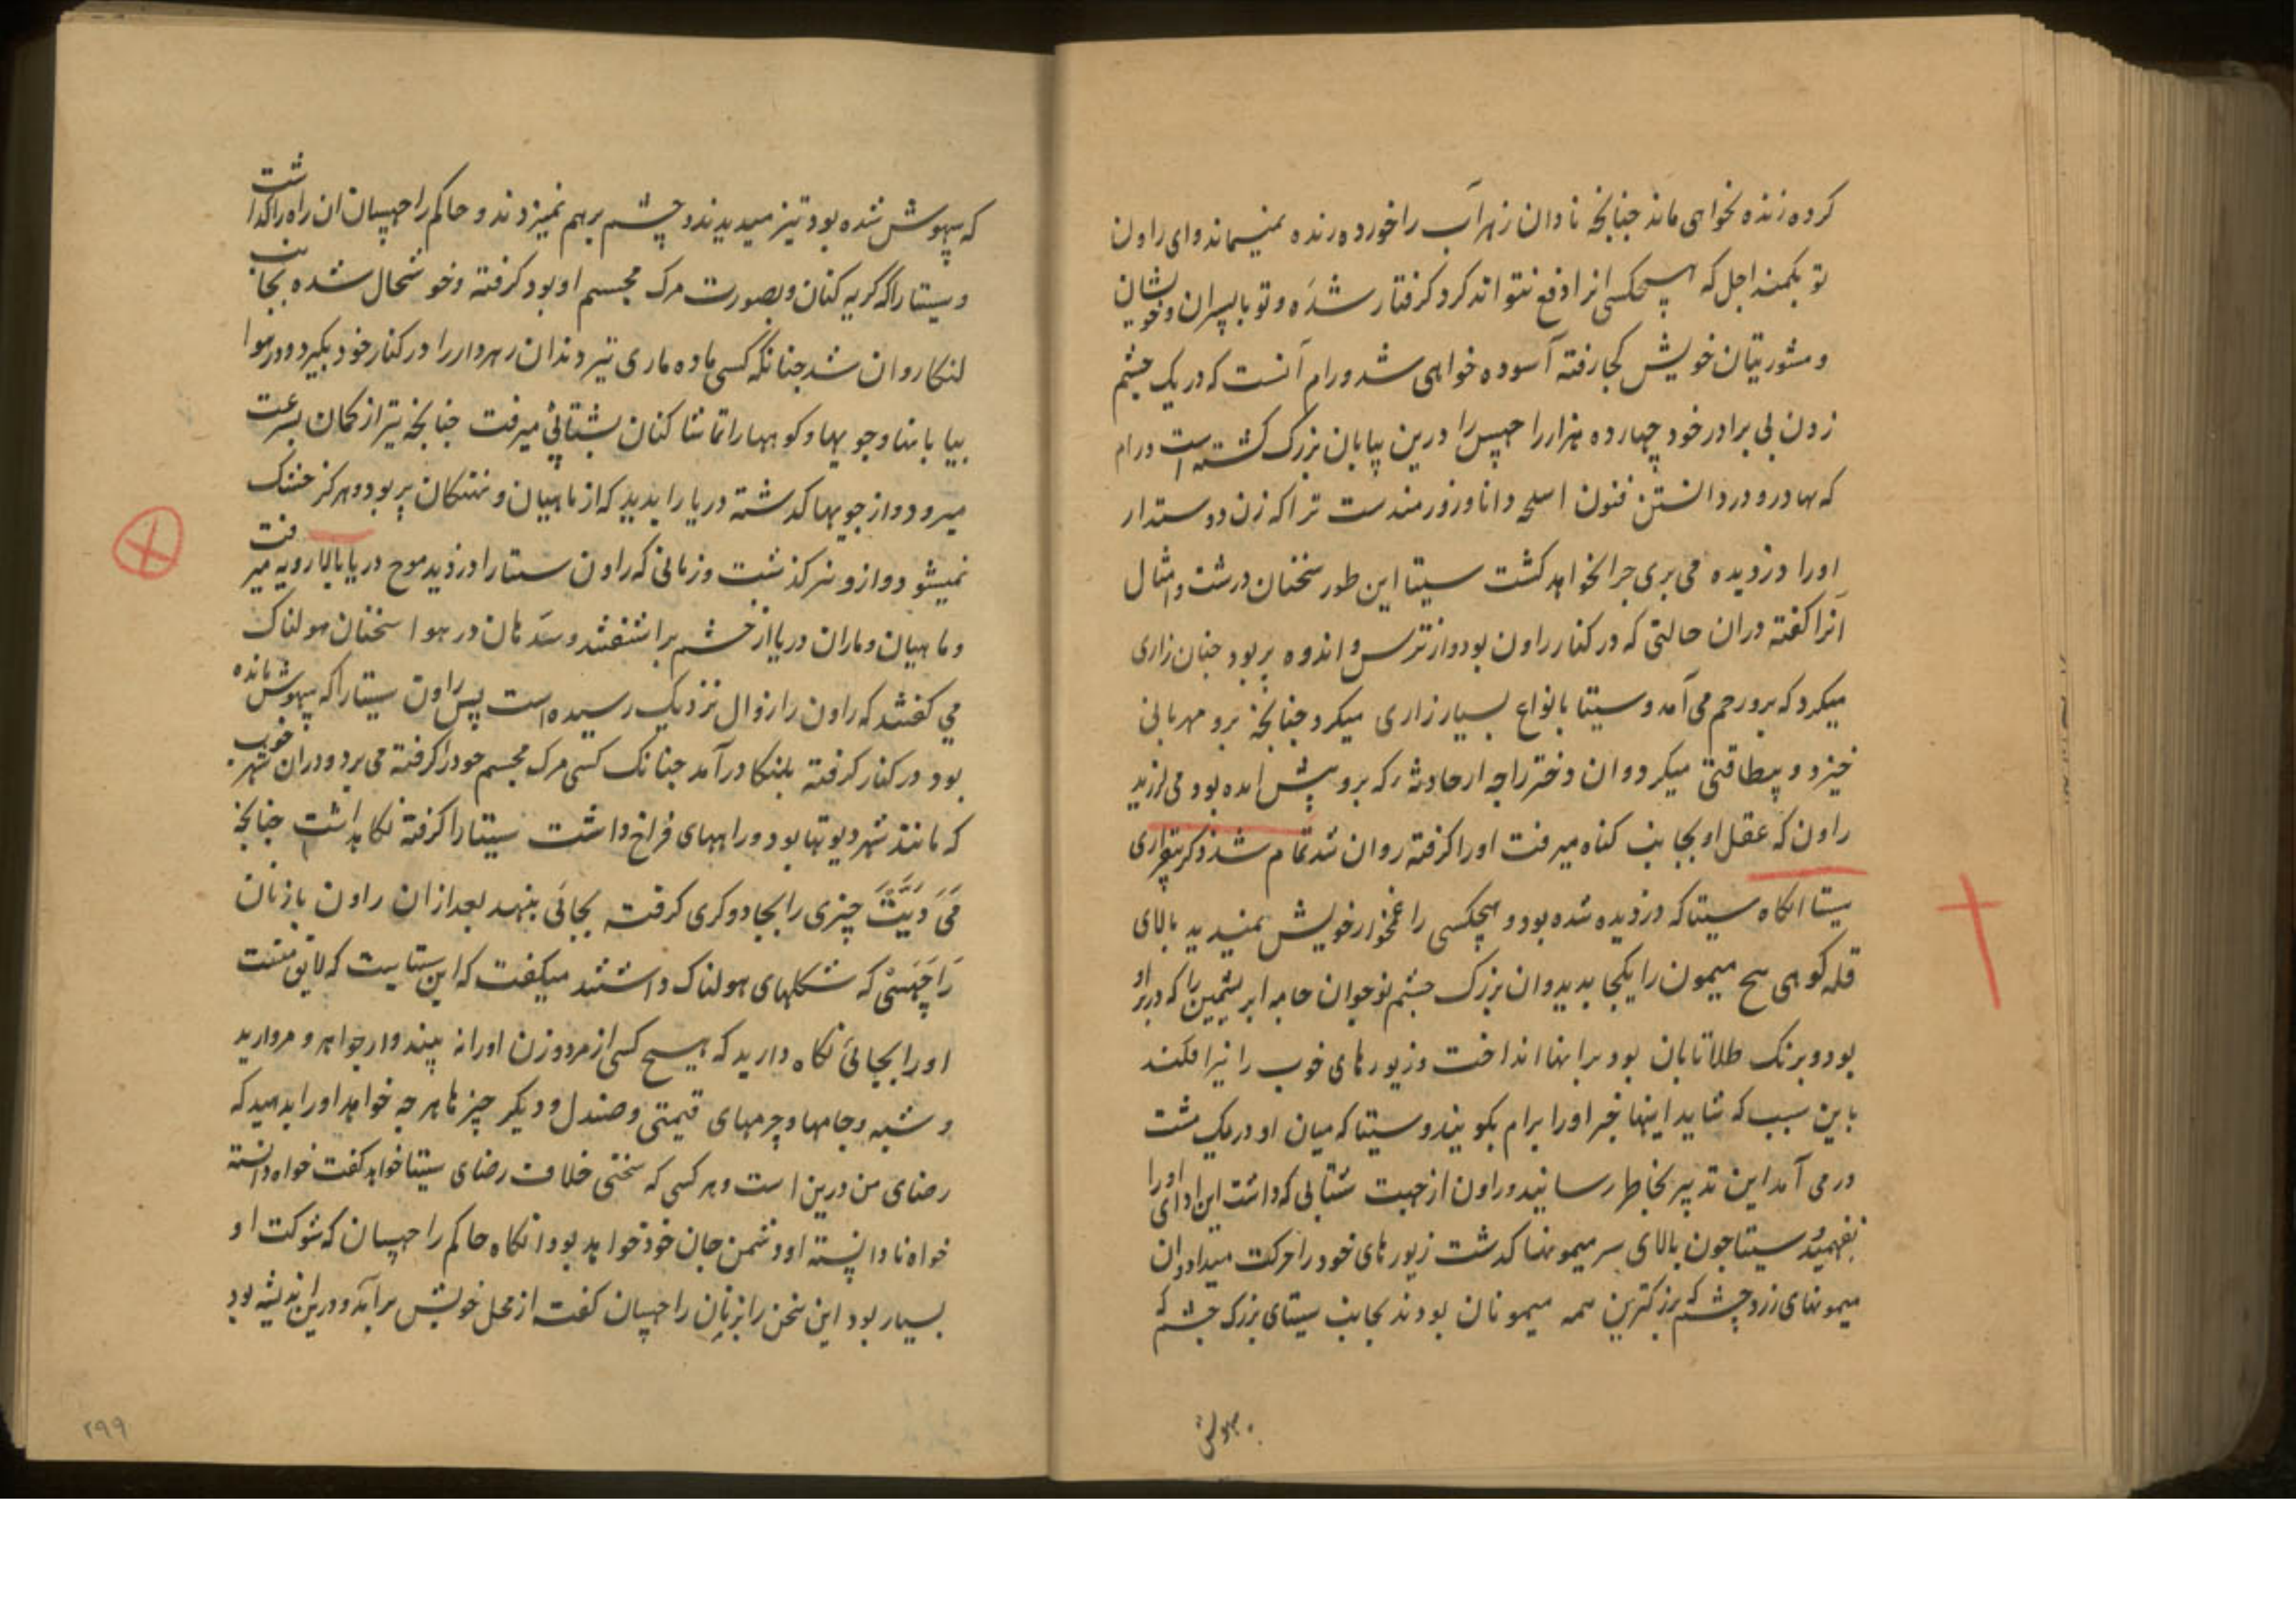 کرده زنده نخواهی ماند جنانجه نادان زهر آب را خورده زنده نمیماند و ای راون
تو بکمند اجل که هیچکسی انرا دفع نتواند کرد کرفتار شده و تو با پسران و خویشان
و مشورتیان خویش کجا رفته آسوده خواهی شد و رام آنست که در یک جشم
زدن بی برادر خود چهارده هزار راچهس را درین بیابان بزرک کشته است و رام
که بهادر و در دانستن فنون اسلحه دانا و زورمندست ترا که زن دوستدار
او را دزدیده می بری جرا نخواهد کشت سیتا این طور سخنان درشت و امثال
آنرا کفته دران حالتی که در کنار راون بود و از ترس و اندوه پر بود جنان زاری
میکرد که برو رحم می آمد و سیتا بانواع بسیار زاری میکرد جنانجه برو مهربانی
خیزد و بیطاقتی میکرد و ان دختر راجه از حادثه که برو پیش امده بود می لرزید
راون که عقل او بجانب کناه میرفت او را کرفته روان شد تمام شد ذکر بیقراری
سیتا انکاه سیتا که دزدیده شده بود و هیچکسی را غمخوار خویش نمیدید بالای
قله کوهی پنج میمون را یکجا بدید و ان بزرک جشم نوجوان جامه ابریشمین را که در بر او
بود و برنک طلا تابان بود بر انها انداخت و زیورهای خوب را نیز افکند
باین سبب که شاید اینها خبر او را برام بکویند و سیتا که میان او در یک مشت
در می آمد این تدبیر بخاطر رسانید و راون از جهت شتابی که داشت این ادای او را
نفهمید و سیتا جون بالای سر میمونها کدشت زیورهای خود را حرکت میداد و ان
میمونهای زرد چشم که بزرکترین همه میمونان بودند بجانب سیتای بزرک جشم
که بیهوش شده بود تیز میدیدند و چشم برهم نمیزدند و حاکم راچهسان ان راه را کداشت
و سیتا را که کریه کنان و بصورت مرک مجسم او بود کرفته و خوشحال شده بجانب
لنکا روان شد جنانکه کسی ماده ماری تیز دندان زهردار را در کنار خود بکیرد و در هوا
بیابانها و جویها و کوهها را تماشا کنان بشتابی میرفت جنانجه تیر از کمان بسرعت
میرود و از جویها کدشته دریا را بدید که از ماهیان و نهنکان پر بود و هرکز خشک
نمیشود و ازو نیز کذشت و زمانی که راون سیتا را دزدید موج دریا بالا رویه میرفت
و ماهیان و ماران دریا از خشم براشفتند و سدهان در هوا سخنان هولناک
می کفتند که راون را زوال نزدیک رسیده است پس راون سیتا را که بیهوش مانده
بود در کنار کرفته بلنکا درآمد جنانک کسی مرک مجسم خود را کرفته می برد و دران شهر خوب
که مانند شهر دیوتها بود و راههای فراخ داشت سیتا را کرفته نکاه داشت جنانجه
می دیت چیزی را بجادوکری کرفته بجائی بنهد بعد از ان راون با زنان
راچهسی که شکلهای هولناک داشتند میکفت که این سیتا یست که لایق منست
او را بجائی نکاه دارید که هیچ کسی از مرد و زن او را نه بیند و از جواهر و مروارید
و شبه و جامها و چرمهای قیمتی و صندل و دیکر چیزها هر چه خواهد او را بدهید که
رضای من درین است و هر کسی که سخنی خلاف رضای سیتا خواهد کفت خواه دانسته
خواه نادانسته او دشمن جان خود خواهد بود انکاه حاکم راچهسان که شوکت او
بسیار بود این سخن را بزنان راچهسان کفته از محل خویش برآمد و درین اندیشه بود
۲۹۹